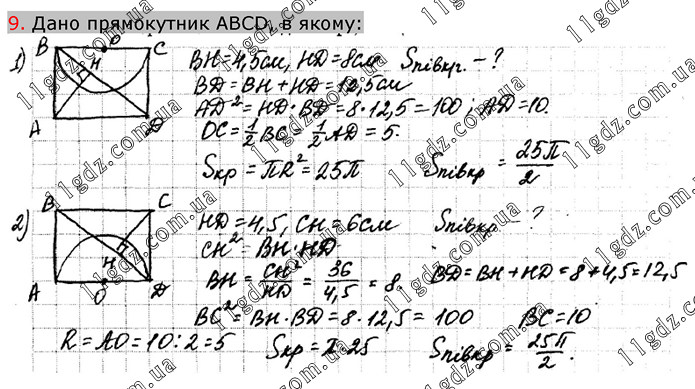 9. Дано прямокутник ABCD, в якому:
1) B O C H A D
BH = 4,5см, HD = 8см Sпівкр. - ?
BD = BH + HD = 12,5см
AD² = HD · BD = 8 · 12,5 = 100; AD = 10.
OC = 1/2 BC = 1/2 AD = 5.
Sкр = πR² = 25π Sпівкр = 25π/2
2) B C H A O D
HD = 4,5, CH = 6см Sпівкр - ?
CH² = BH · HD
BH = CH²/HD = 36/4,5 = 8 BD = BH + HD = 8 + 4,5 = 12,5
BC² = BH · BD = 8 · 12,5 = 100 BC = 10
R = AO = 10 : 2 = 5 Sкр = π·25 Sпівкр = 25π/2.
11gdz.com.ua